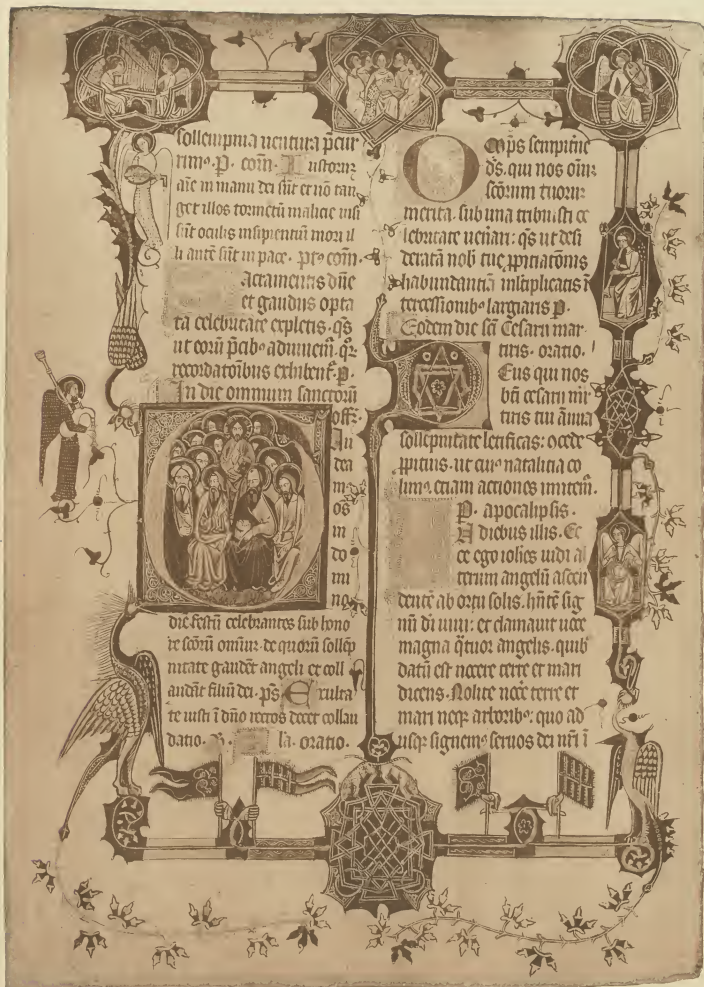 sollempnia uentura p̄cur
rim⁹. P. com̄. Iustorum
aīe in manu dei sūt et nō tan
get illos tormētū malicie uisi
sūt oculis insipientiū mori il
li autē sūt in pace. p⁹ com̄.
Sacramentis dn̄e
et gaudiis opta
ta celebritate expletis. qs
ut eorū p̄cib⁹ adiuuem̄. qr̄
recordatoībus exhibent̄. P.
In die omnium sanctorū
off̄.
Gau
dea
m
os
in
do
mi
no
die festū celebrantes sub hono
re scōrū omīum de quorū sollēp
nitate gaudēt angeli et coll
audēt filiū dei. ps̄ Exulta
te iusti ī dn̄o rectos decet collau
datio. la. oratio.
Omp̄s sempitne
ds̄. qui nos oīm
scōrum tuorum
merita. sub una tribuisti ce
lebritate uen̄ari: qs ut desi
deratā nob̄ tue p̄pitiatōnis
habundantiā multiplicatis ī
tercessionib⁹ largiaris P.
Eodem die sc̄i Cesarii mar
tiris. oratio.
Deus qui nos
bt̄i cesarii mr̄
tiris tui ānua
sollepnitate letificas: ɔcede
p̄pitius. ut cui⁹ natalitia co
lim⁹. etiam actiones imitem̄.
P. apocalipsis.
In diebus illis. Ec
ce ego ioh̄es uidi al
terum angelū ascen
dentē ab ortu solis. hn̄tē sig
nū dī uiui: et clamauit uoce
magna q̄tuor angelis. quib
datū est nocere terre et mari
dicens. Nolite nocē terre et
mari neq; arborib⁹: quo ad
usq; signem⁹ seruos dei nrī ī